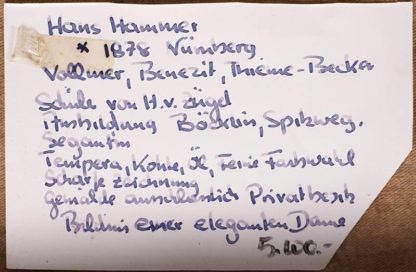 Hans Hammer
* 1878 Nürnberg
Vollmer, Benezit, Thieme-Becker
Schule von H.v. Zügel
Ausbildung Böcklin, Spitzweg.
Segantin
Tempera, Kohle, Öl, feine Farbwahl
Scharfe Zeichnung
Gemälde ausschliesslich Privatbesitz
Bildnis einer eleganten Dame
5.100.-